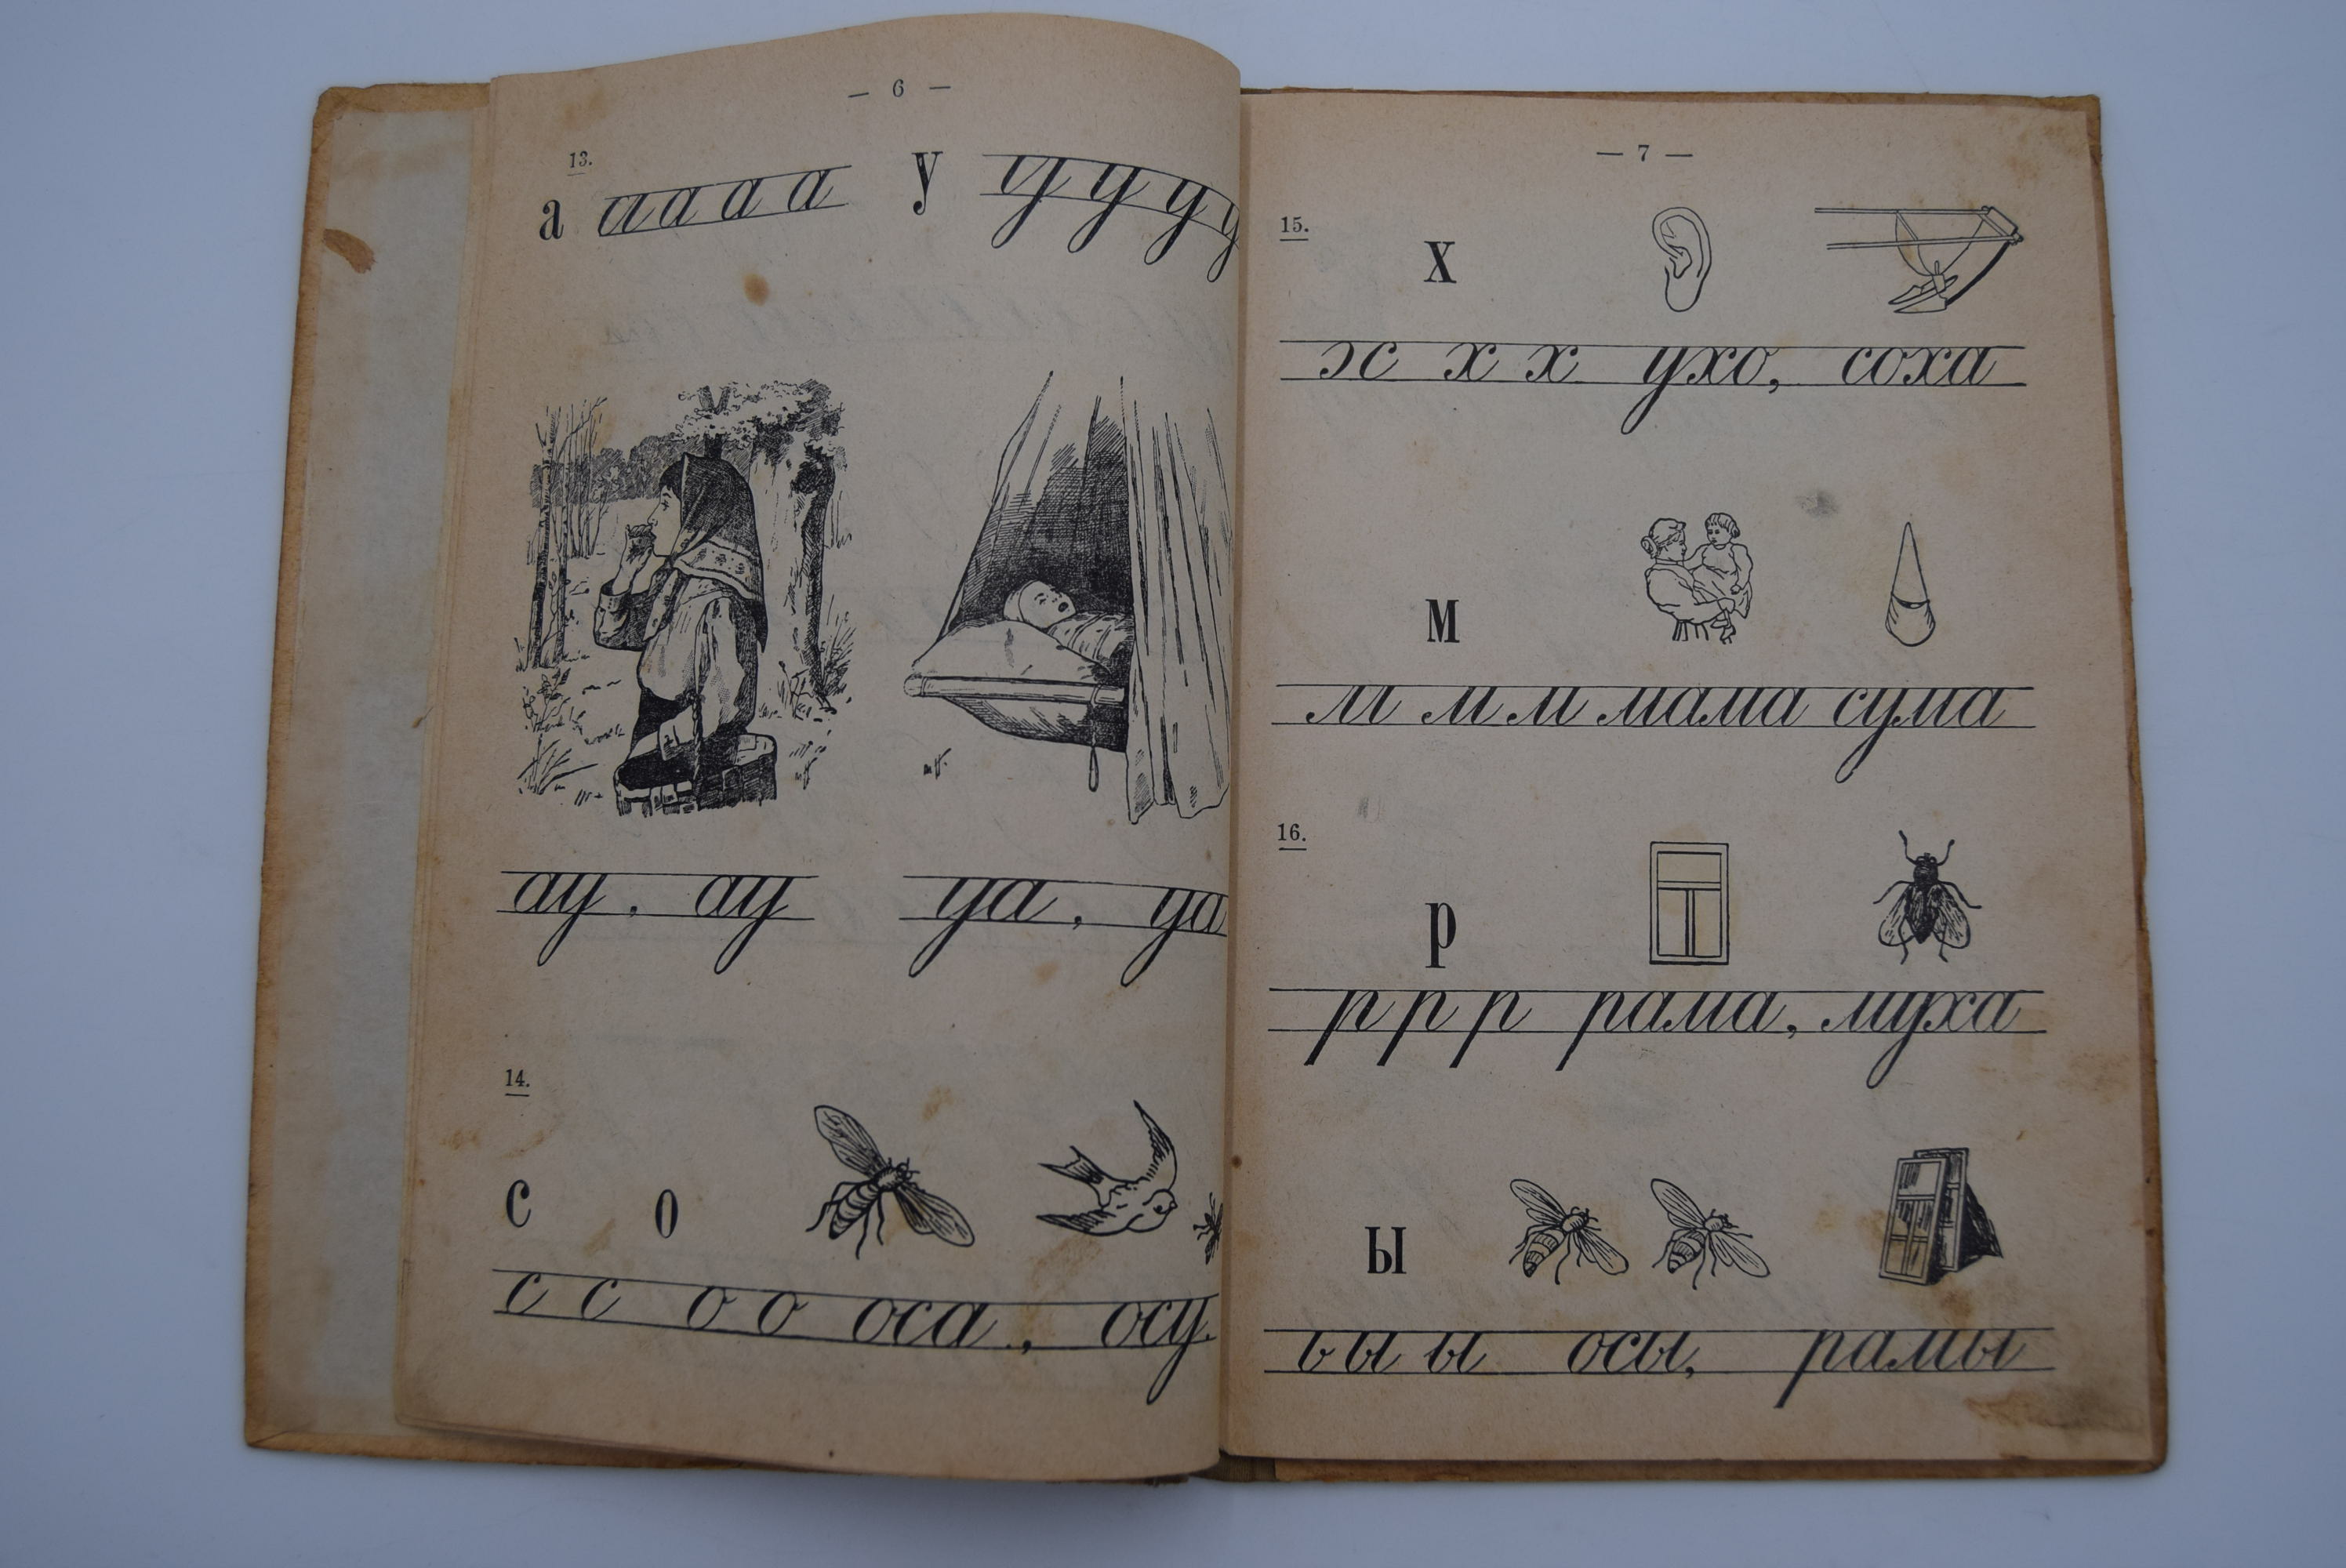 — 6 —
13.
а а а а а у у у у у
ау, ау уа, уа
14.
с о
с с о о оса, осу.
— 7 —
15.
х
х х х ухо, соха
м
м м м мама сума
16.
р
р р р рама, муха
ы
ь ы ы осы, рамы